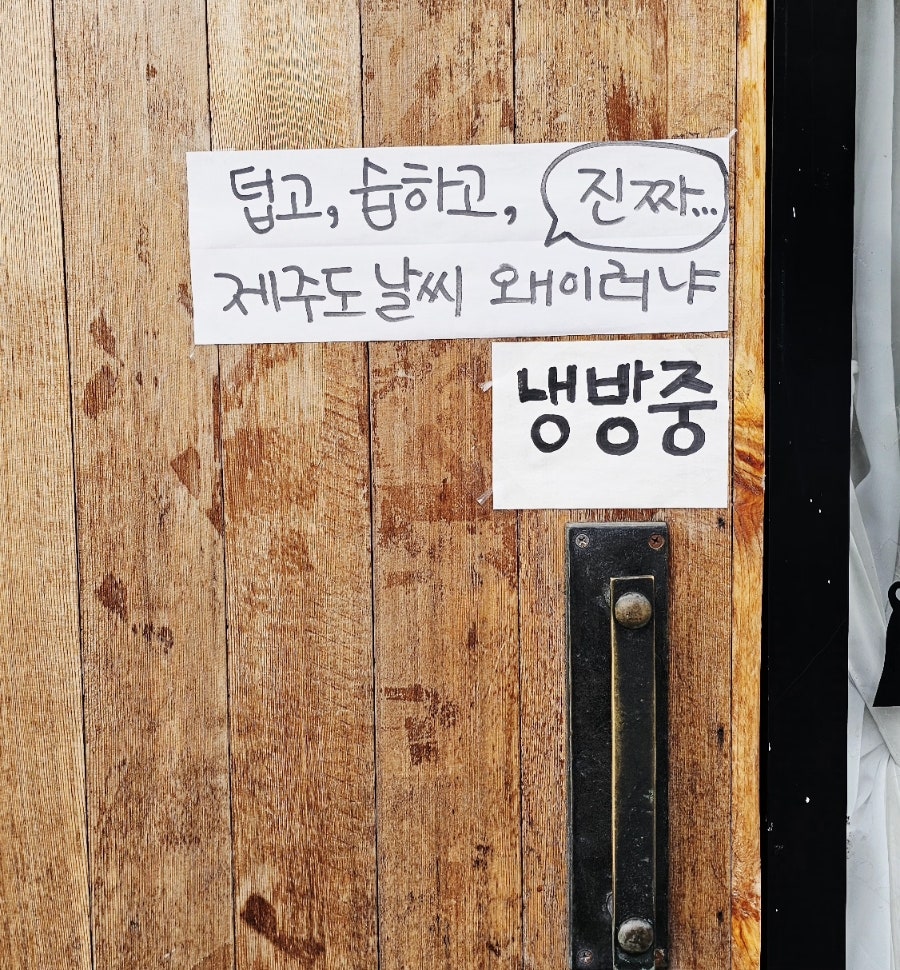 덥고, 습하고, 진짜...
제주도 날씨 왜이러냐
냉방중